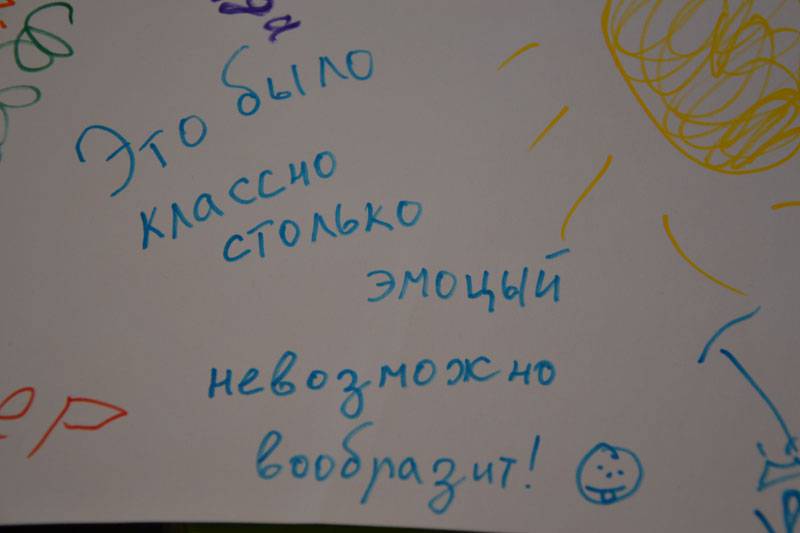 Это было
классно
столько
эмоцый
невозможно
вообразит!